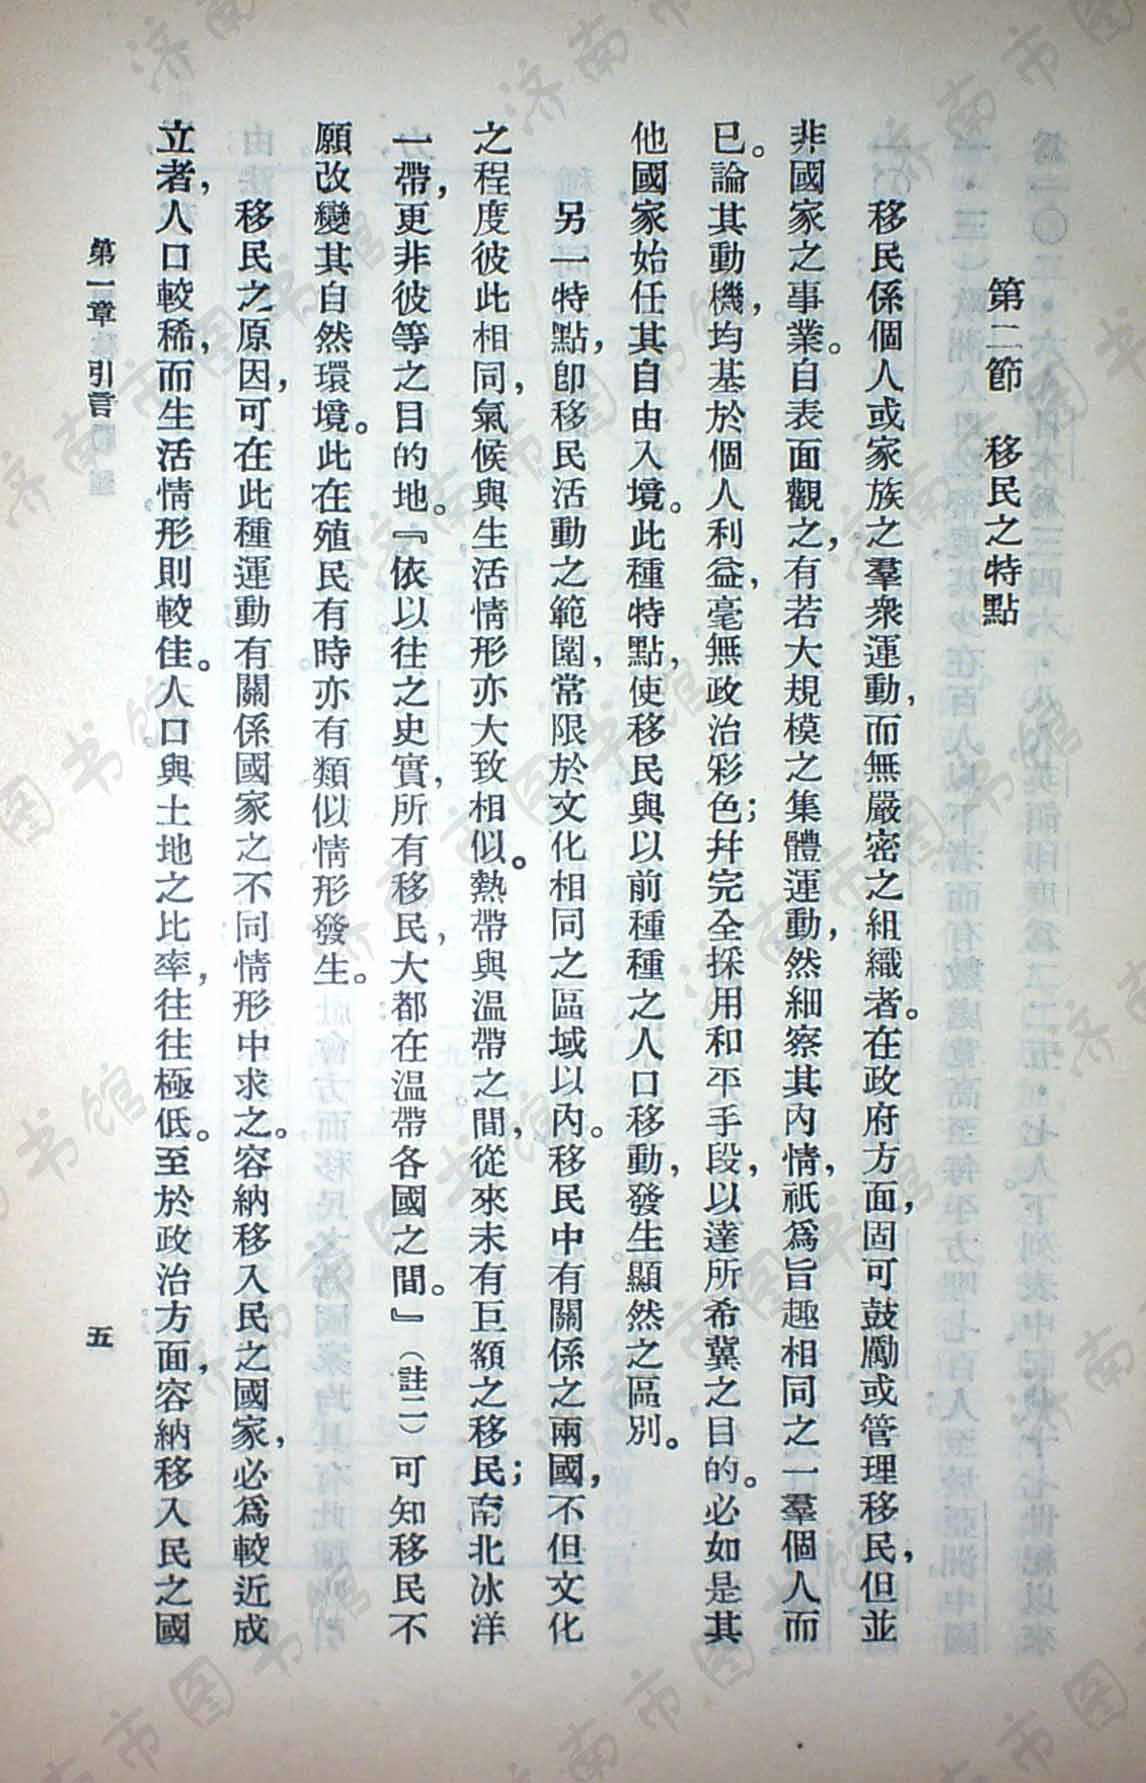 第二節　移民之特點
移民係個人或家族之羣衆運動，而無嚴密之組織者。在政府方面，固可鼓勵或管理移民，但並
非國家之事業。自表面觀之，有若大規模之集體運動，然細察其內情，祇爲旨趣相同之一羣個人而
已。論其動機，均基於個人利益，毫無政治彩色；幷完全採用和平手段，以達所希冀之目的。必如是其
他國家始任其自由入境。此種特點，使移民與以前種種之人口移動，發生顯然之區別。
另一特點，卽移民活動之範圍，常限於文化相同之區域以內。移民中有關係之兩國，不但文化
之程度彼此相同，氣候與生活情形亦大致相似。熱帶與溫帶之間，從來未有巨額之移民；南北冰洋
一帶，更非彼等之目的地。『依以往之史實，所有移民，大都在溫帶各國之間。』（註二）可知移民不
願改變其自然環境。此在殖民有時亦有類似情形發生。
移民之原因，可在此種運動有關係國家之不同情形中求之。容納移入民之國家，必爲較近成
立者，人口較稀，而生活情形則較佳。人口與土地之比率，往往極低。至於政治方面，容納移入民之國
第一章　引言
五
济南市图书馆